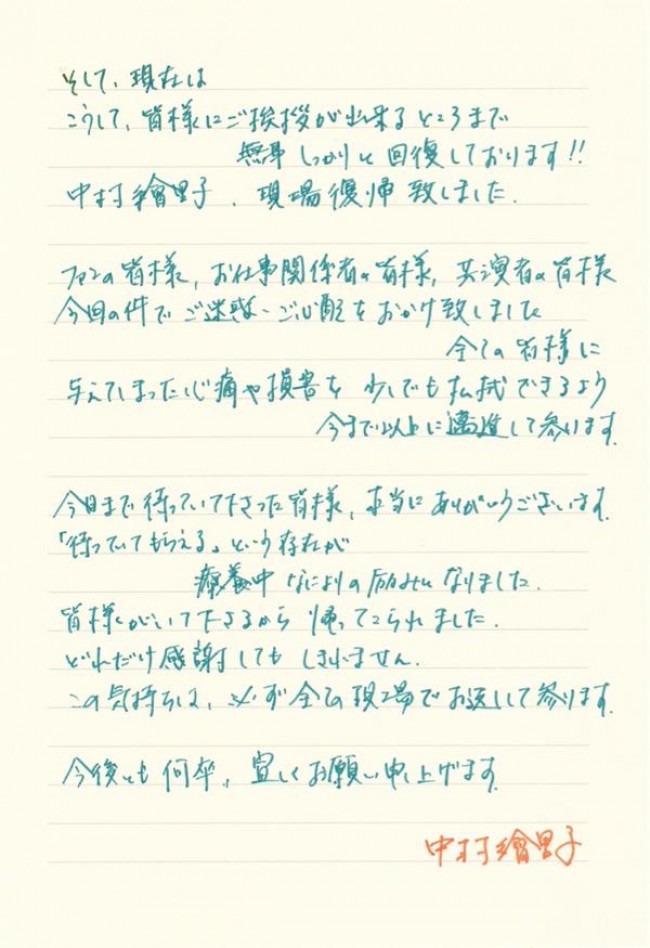 そして、現在は
こうして、皆様にご挨拶が出来るところまで
無事しっかりと回復しております!!
中村繪里子、現場復帰致しました。
ファンの皆様、お仕事関係者の皆様、共演者の皆様
今回の件でご迷惑・ご心配をおかけ致しました
全ての皆様に
与えてしまった心痛や損害を少しでも払拭できるよう
今まで以上に邁進して参ります。
今日まで待っていて下さった皆様、本当にありがとうございます。
「待っていてもらえる」という存在が
療養中なによりの励みになりました。
皆様がいて下さるから帰ってこられました。
どれだけ感謝してもしきれません。
この気持ちは、必ず全ての現場でお返しして参ります。
今後とも何卒、宜しくお願い申し上げます。
中村繪里子